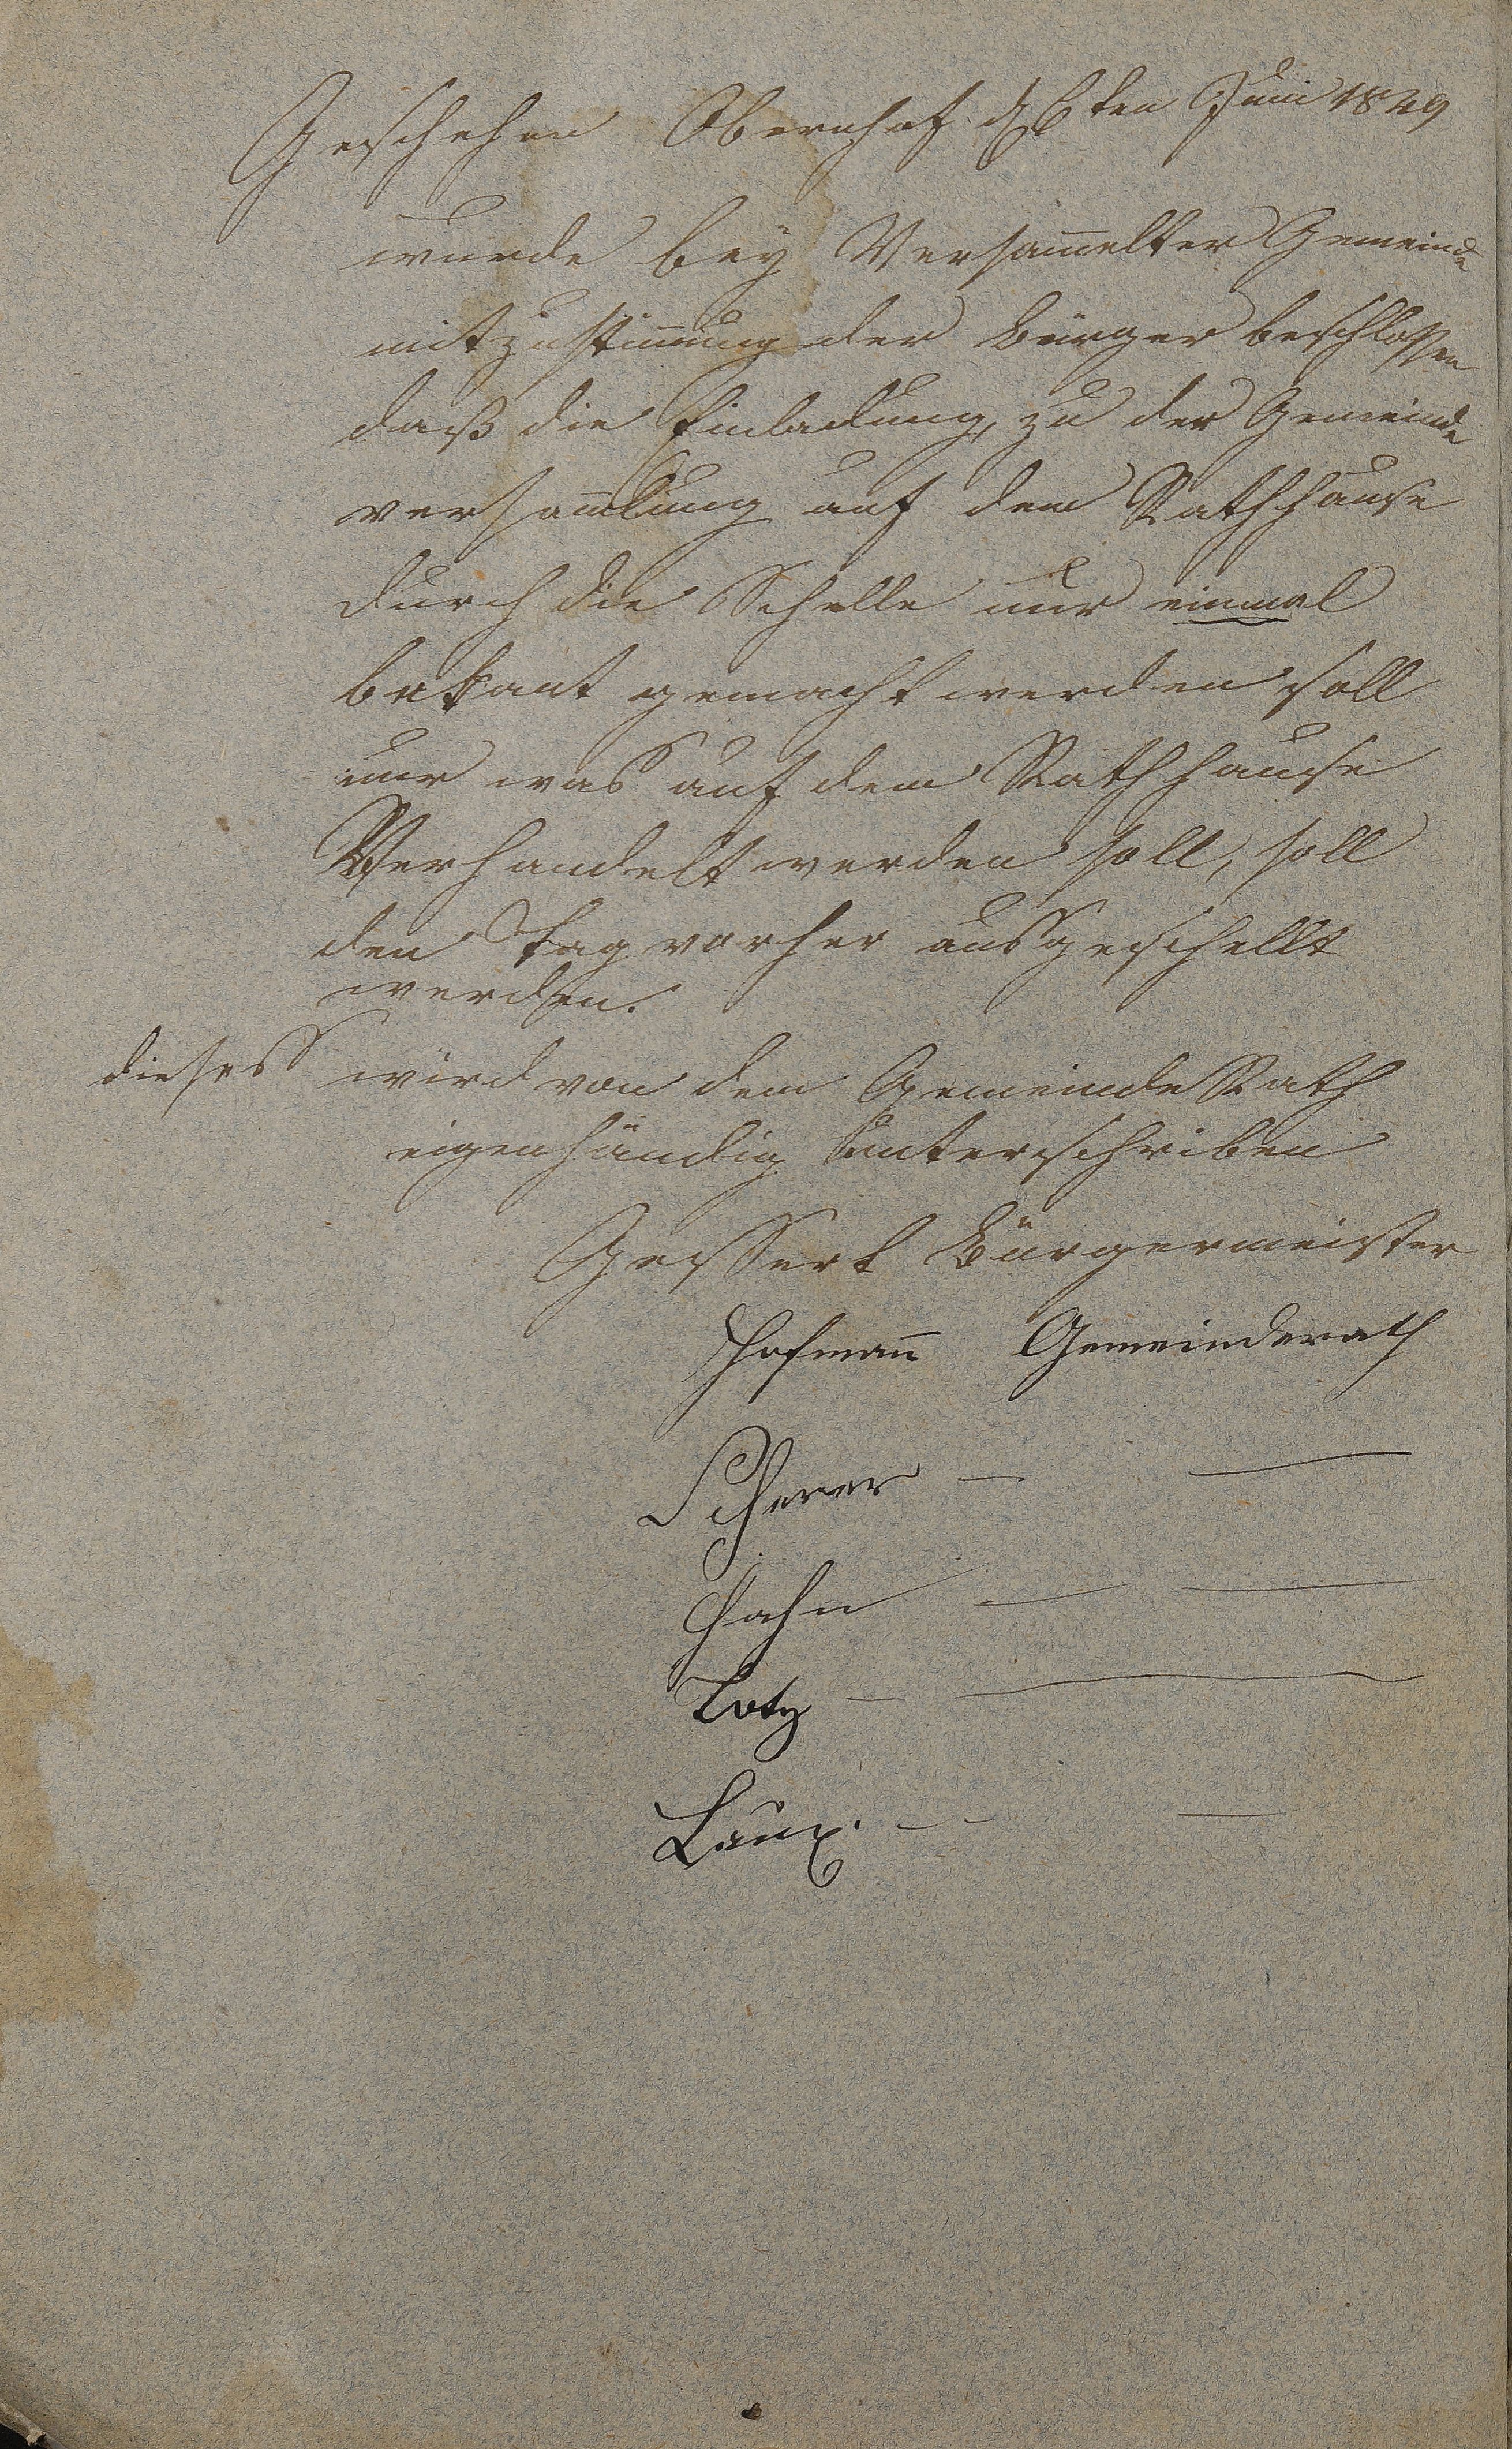 Geschehen Obernhof d 6ten Juni 1849
wurde bey Versam̅elter Gemeinde
mit zustim̅ung der Bürger beschlossen
daß die Einladung, zu der Gemeinde
versam̅lung auf dem Rathhause
durch die Schelle nur einmal
bekant gemacht werden soll
nur was auf dem Rathhause
Verhandelt werden soll, soll
den Tag vorher ausgeschellt
werden.
dieses wird von dem Gemeinde Rath
eigenhändig unterschriben
Geissert Bürgermeister
Hofman̅ Gemeinderath
Scherer — —
Hahn — —
Lotz — —
Laux. — —